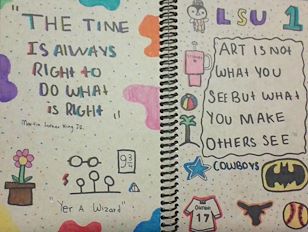 "THE TIME
IS ALWAYS
RIGHT TO
DO WHAT
iS RIGHT"
Martin Luther King Jr.
9 3/4
"Yer A Wizard"
LSU 1
"ART IS NOT
WHAT YOU
SEE BUT WHAT
YOU MAKE
OTHERS SEE"
COWBOYS
17